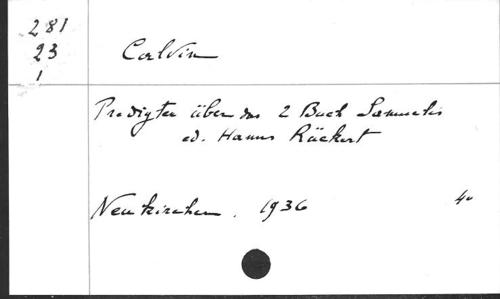 281
23
1
Calvin
Predigten über das 2 Buch Samuelis
ed. Hanns Rückert
Neukirchen. 1936
4°